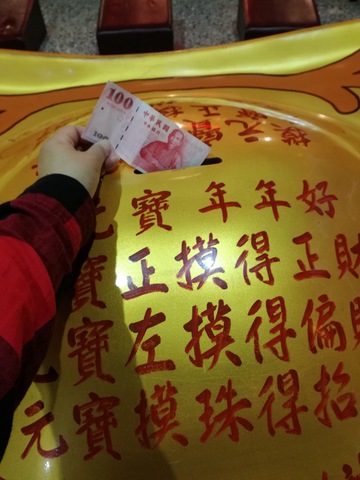 100
中華民國
100
寶 年年好
寶 正摸得正財
寶 左摸得偏財
元寶 摸珠得招